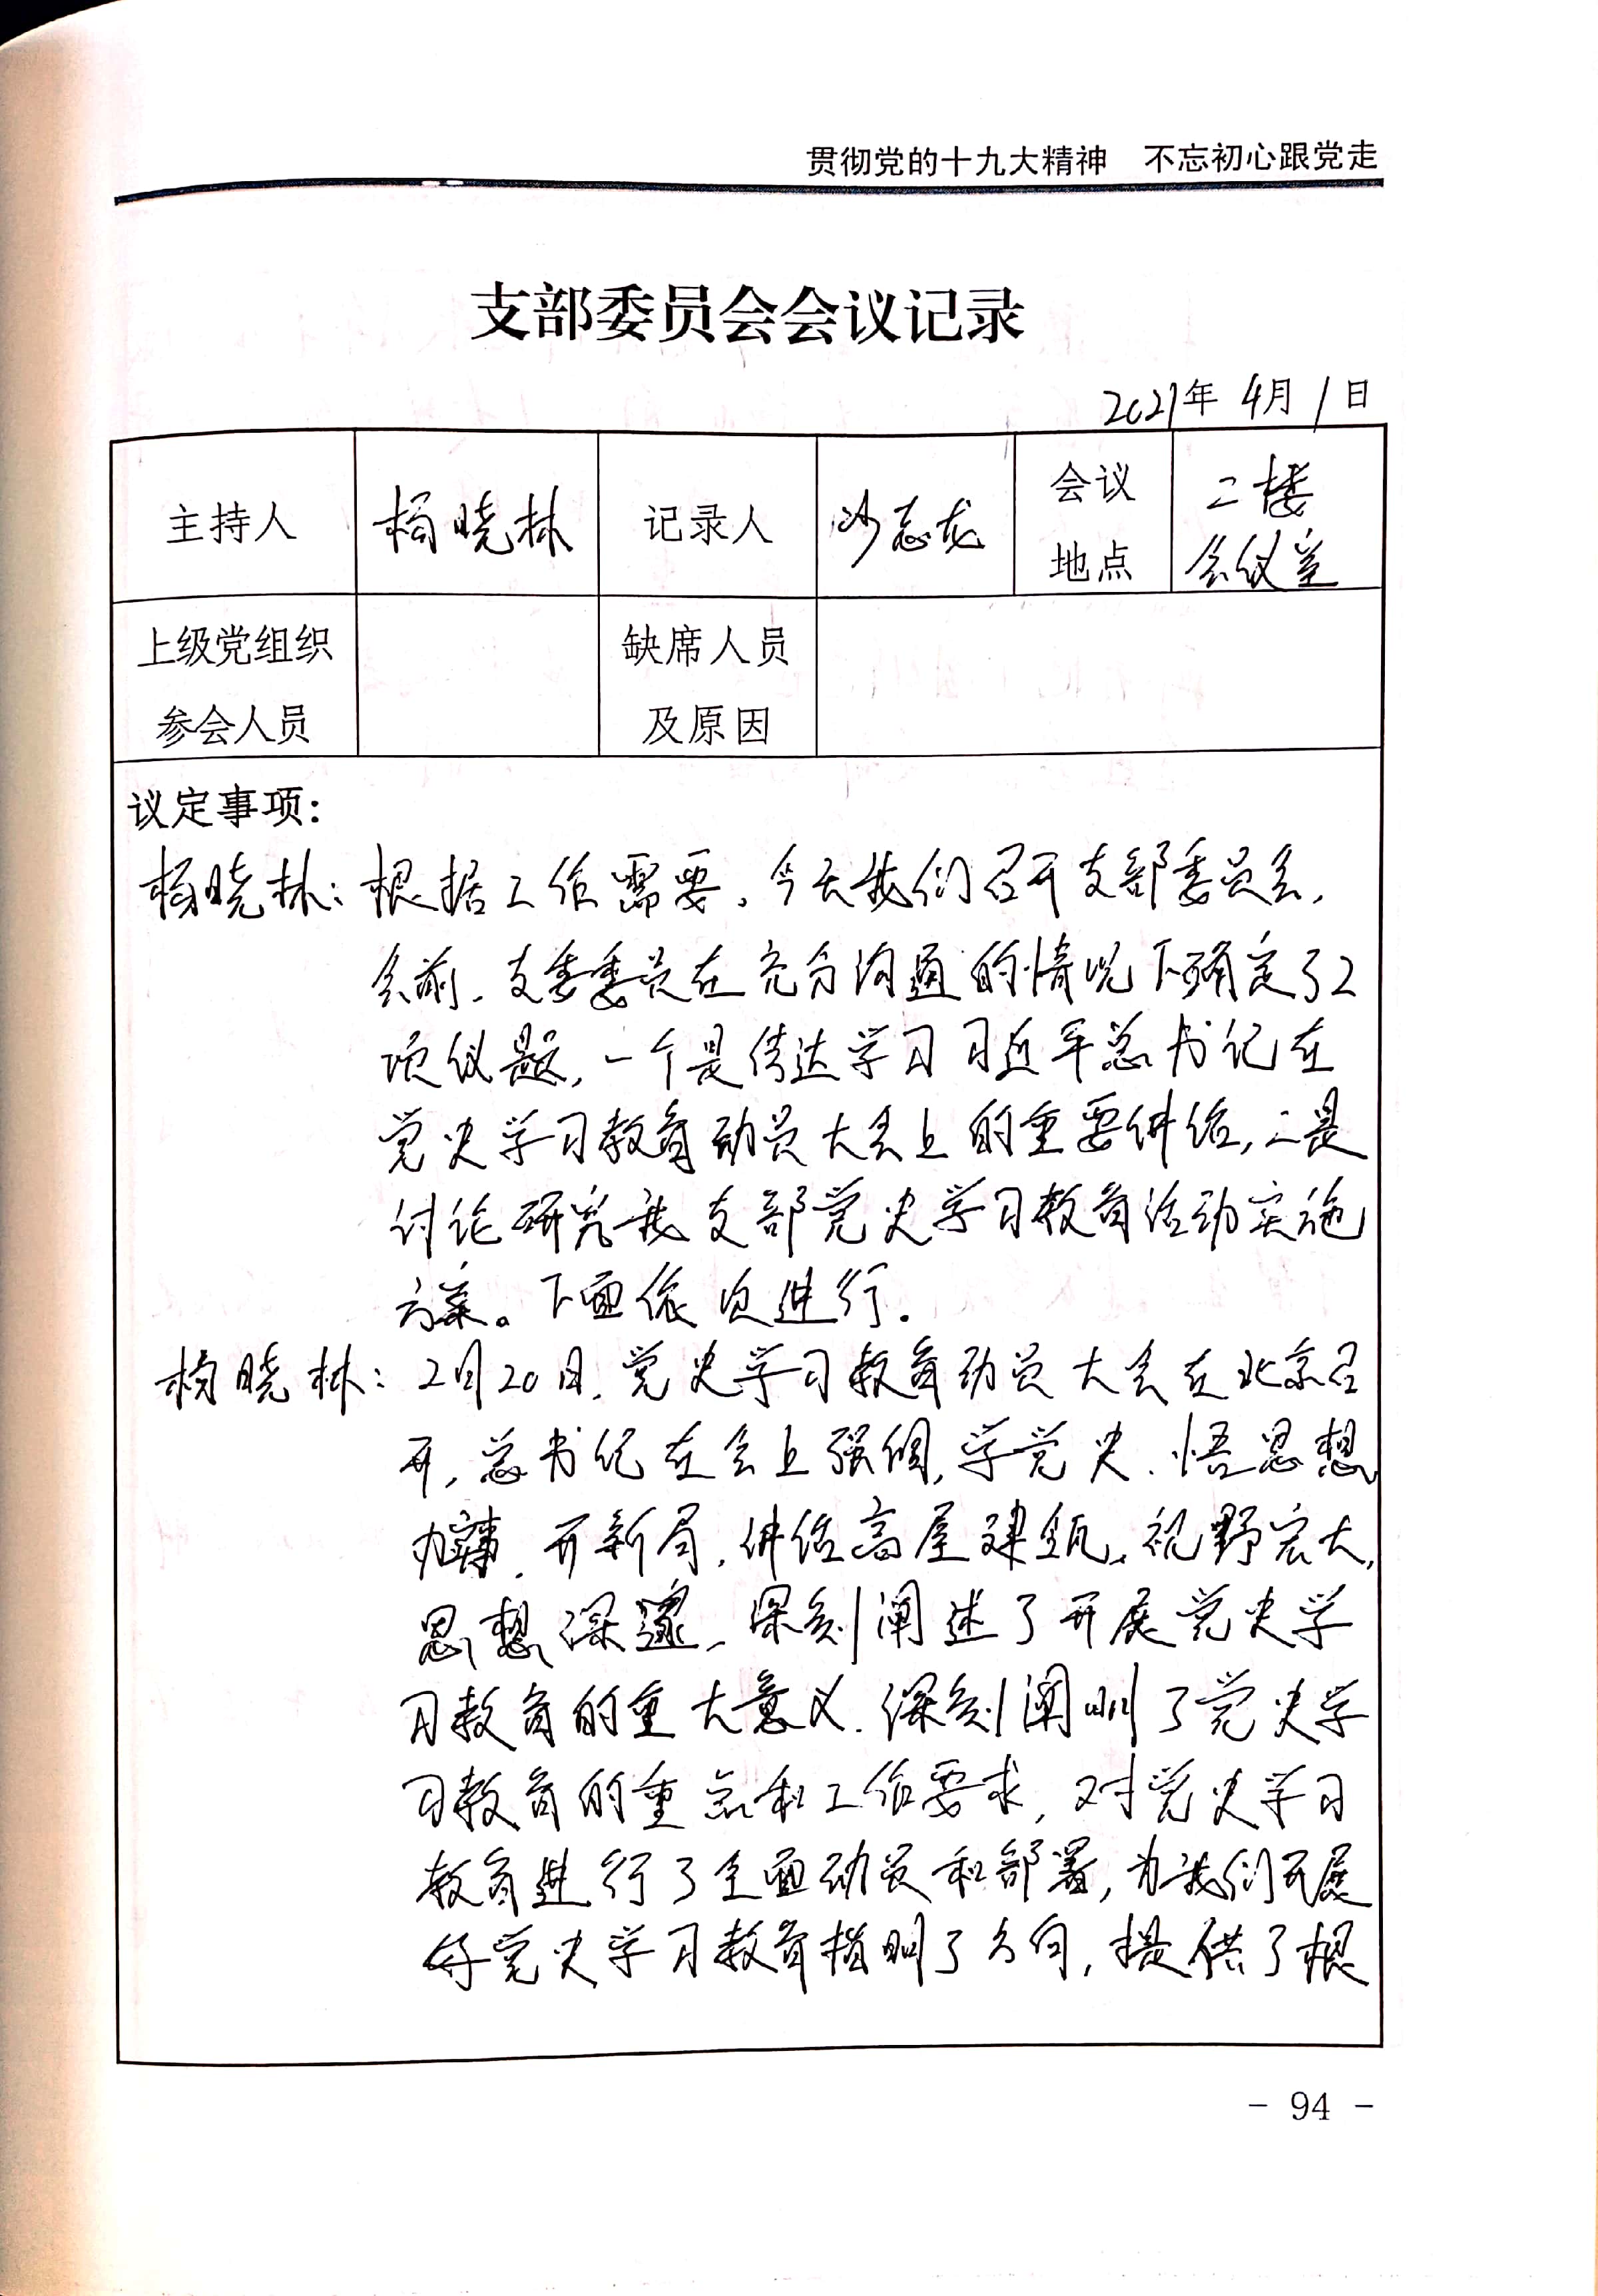 贯彻党的十九大精神 不忘初心跟党走
支部委员会会议记录
2021年 4月 1日
主持人 杨晓林 记录人 沙志龙 会议地点 二楼会议室
上级党组织参会人员 缺席人员及原因
议定事项：
杨晓林：根据工作需要，今天我们召开支部委员会，
会前，支委委员在充分沟通的情况下确定了2
项议题，一个是传达学习习近平总书记在
党史学习教育动员大会上的重要讲话，二是
讨论研究我支部党史学习教育活动实施
方案。下面依次进行．
杨晓林：2月20日，党史学习教育动员大会在北京召
开，总书记在会上强调，学党史、悟思想
办实事、开新局，讲话高屋建瓴、视野宏大，
思想深邃、深刻阐述了开展党史学
习教育的重大意义．深刻阐明了党史学
习教育的重点和工作要求，对党史学习
教育进行了全面动员和部署，为我们开展
好党史学习教育指明了方向，提供了根
- 94 -